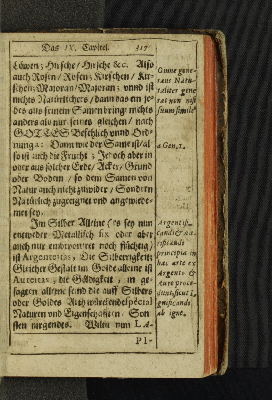 Das IX. Capitel. 317
Löwen; Hirsche/Hirsche &c. Also
auch Rosen/Rosen; Kirschen/Kir-
schen; Majoran/Majoran; unnd ist
nichts Natürlichers/dann das ein je-
des aus seinem Samen bringt nichts
anders als nur seines gleichen/nach
GOTTES Beschlich unnd Ord-
nung a: Dann wie der Same ist/al-
so ist auch die Frucht; Jedoch aber in
vor aus solcher Erde/Acker/Grund
oder Bodem/so dem Samen von
Natur auch nicht zuwider/Sondern
Natürlich zugeeignet und angewiede-
met sey.
Im Silber Alleine (es sey nun
entweder Metallisch fix oder aber
auch nur noch flüchtig)
ist Argenteitas, Die Silberrigkeit;
Gleicher Gestalt im Golde alleine ist
Aureitas, die Göldigkeit, in ge-
sagten alleine send die auff Silbers
oder Goldes Arth würckende special
Naturen und Eigenschafften. Son-
sten nirgendes. Wann nun LÆ-
PI-
Omne gene-
rans Natu-
raliter gene-
rat non nisi
suum simile
a Gen. 1.
Argentifi-
candi & au-
rificandi
principia in
hac arte ex
Argento &
Auro proce-
dunt, sicut i-
gnificandi
ab igne.